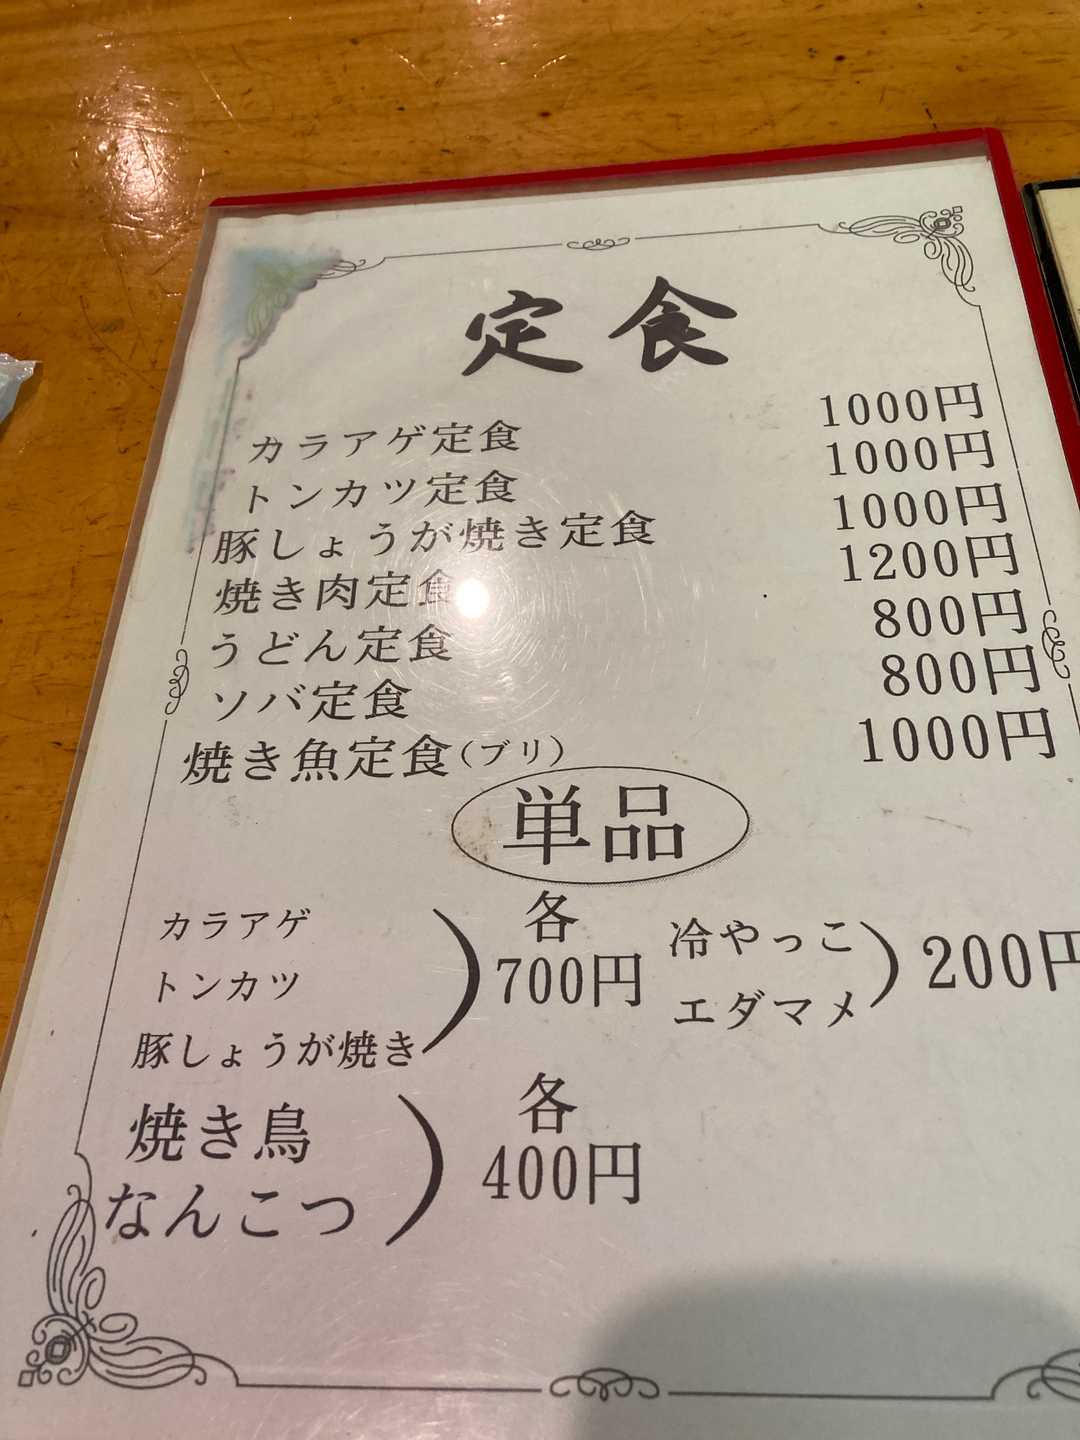 定食
カラアゲ定食 1000円
トンカツ定食 1000円
豚しょうが焼き定食 1000円
焼き肉定食 1200円
うどん定食 800円
ソバ定食 800円
焼き魚定食(ブリ) 1000円
単品
カラアゲ
トンカツ
豚しょうが焼き
各
700円
冷やっこ
エダマメ
200円
焼き鳥
なんこつ
各
400円